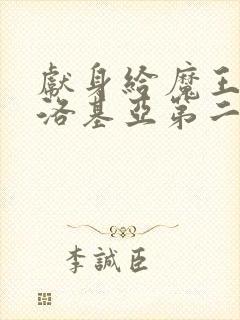 獻身給魔王
洛基亞第二
李誠臣